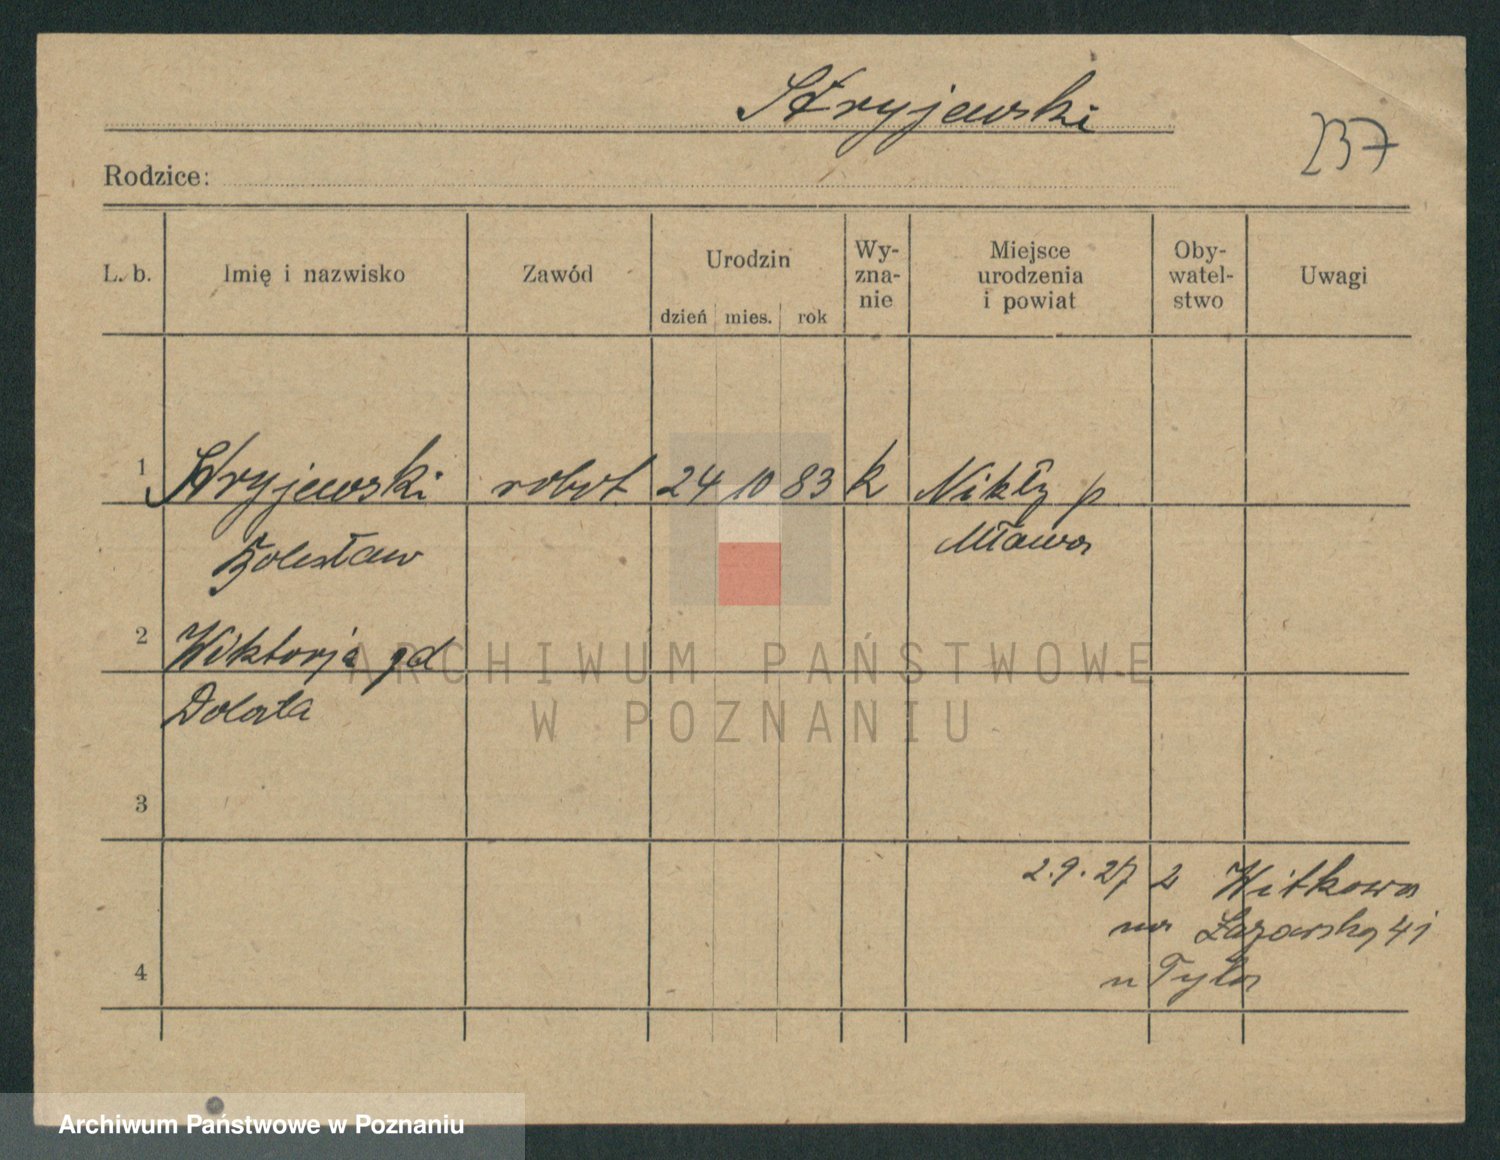 Stryjewski
237
Rodzice:
L. b. Imię i nazwisko Zawód Urodzin dzień mies. rok Wy-zna-nie Miejsce urodzenia i powiat Oby-watel-stwo Uwagi
1 Stryjewski robot 24 10 83 k Nikły p
Bolesław Mława
2 Wiktorja gd
Dolata
3
2.9.27 z Witkowa
na Łazarską 41
4 u Tyla
ARCHIWUM PAŃSTWOWE
W POZNANIU
Archiwum Państwowe w Poznaniu